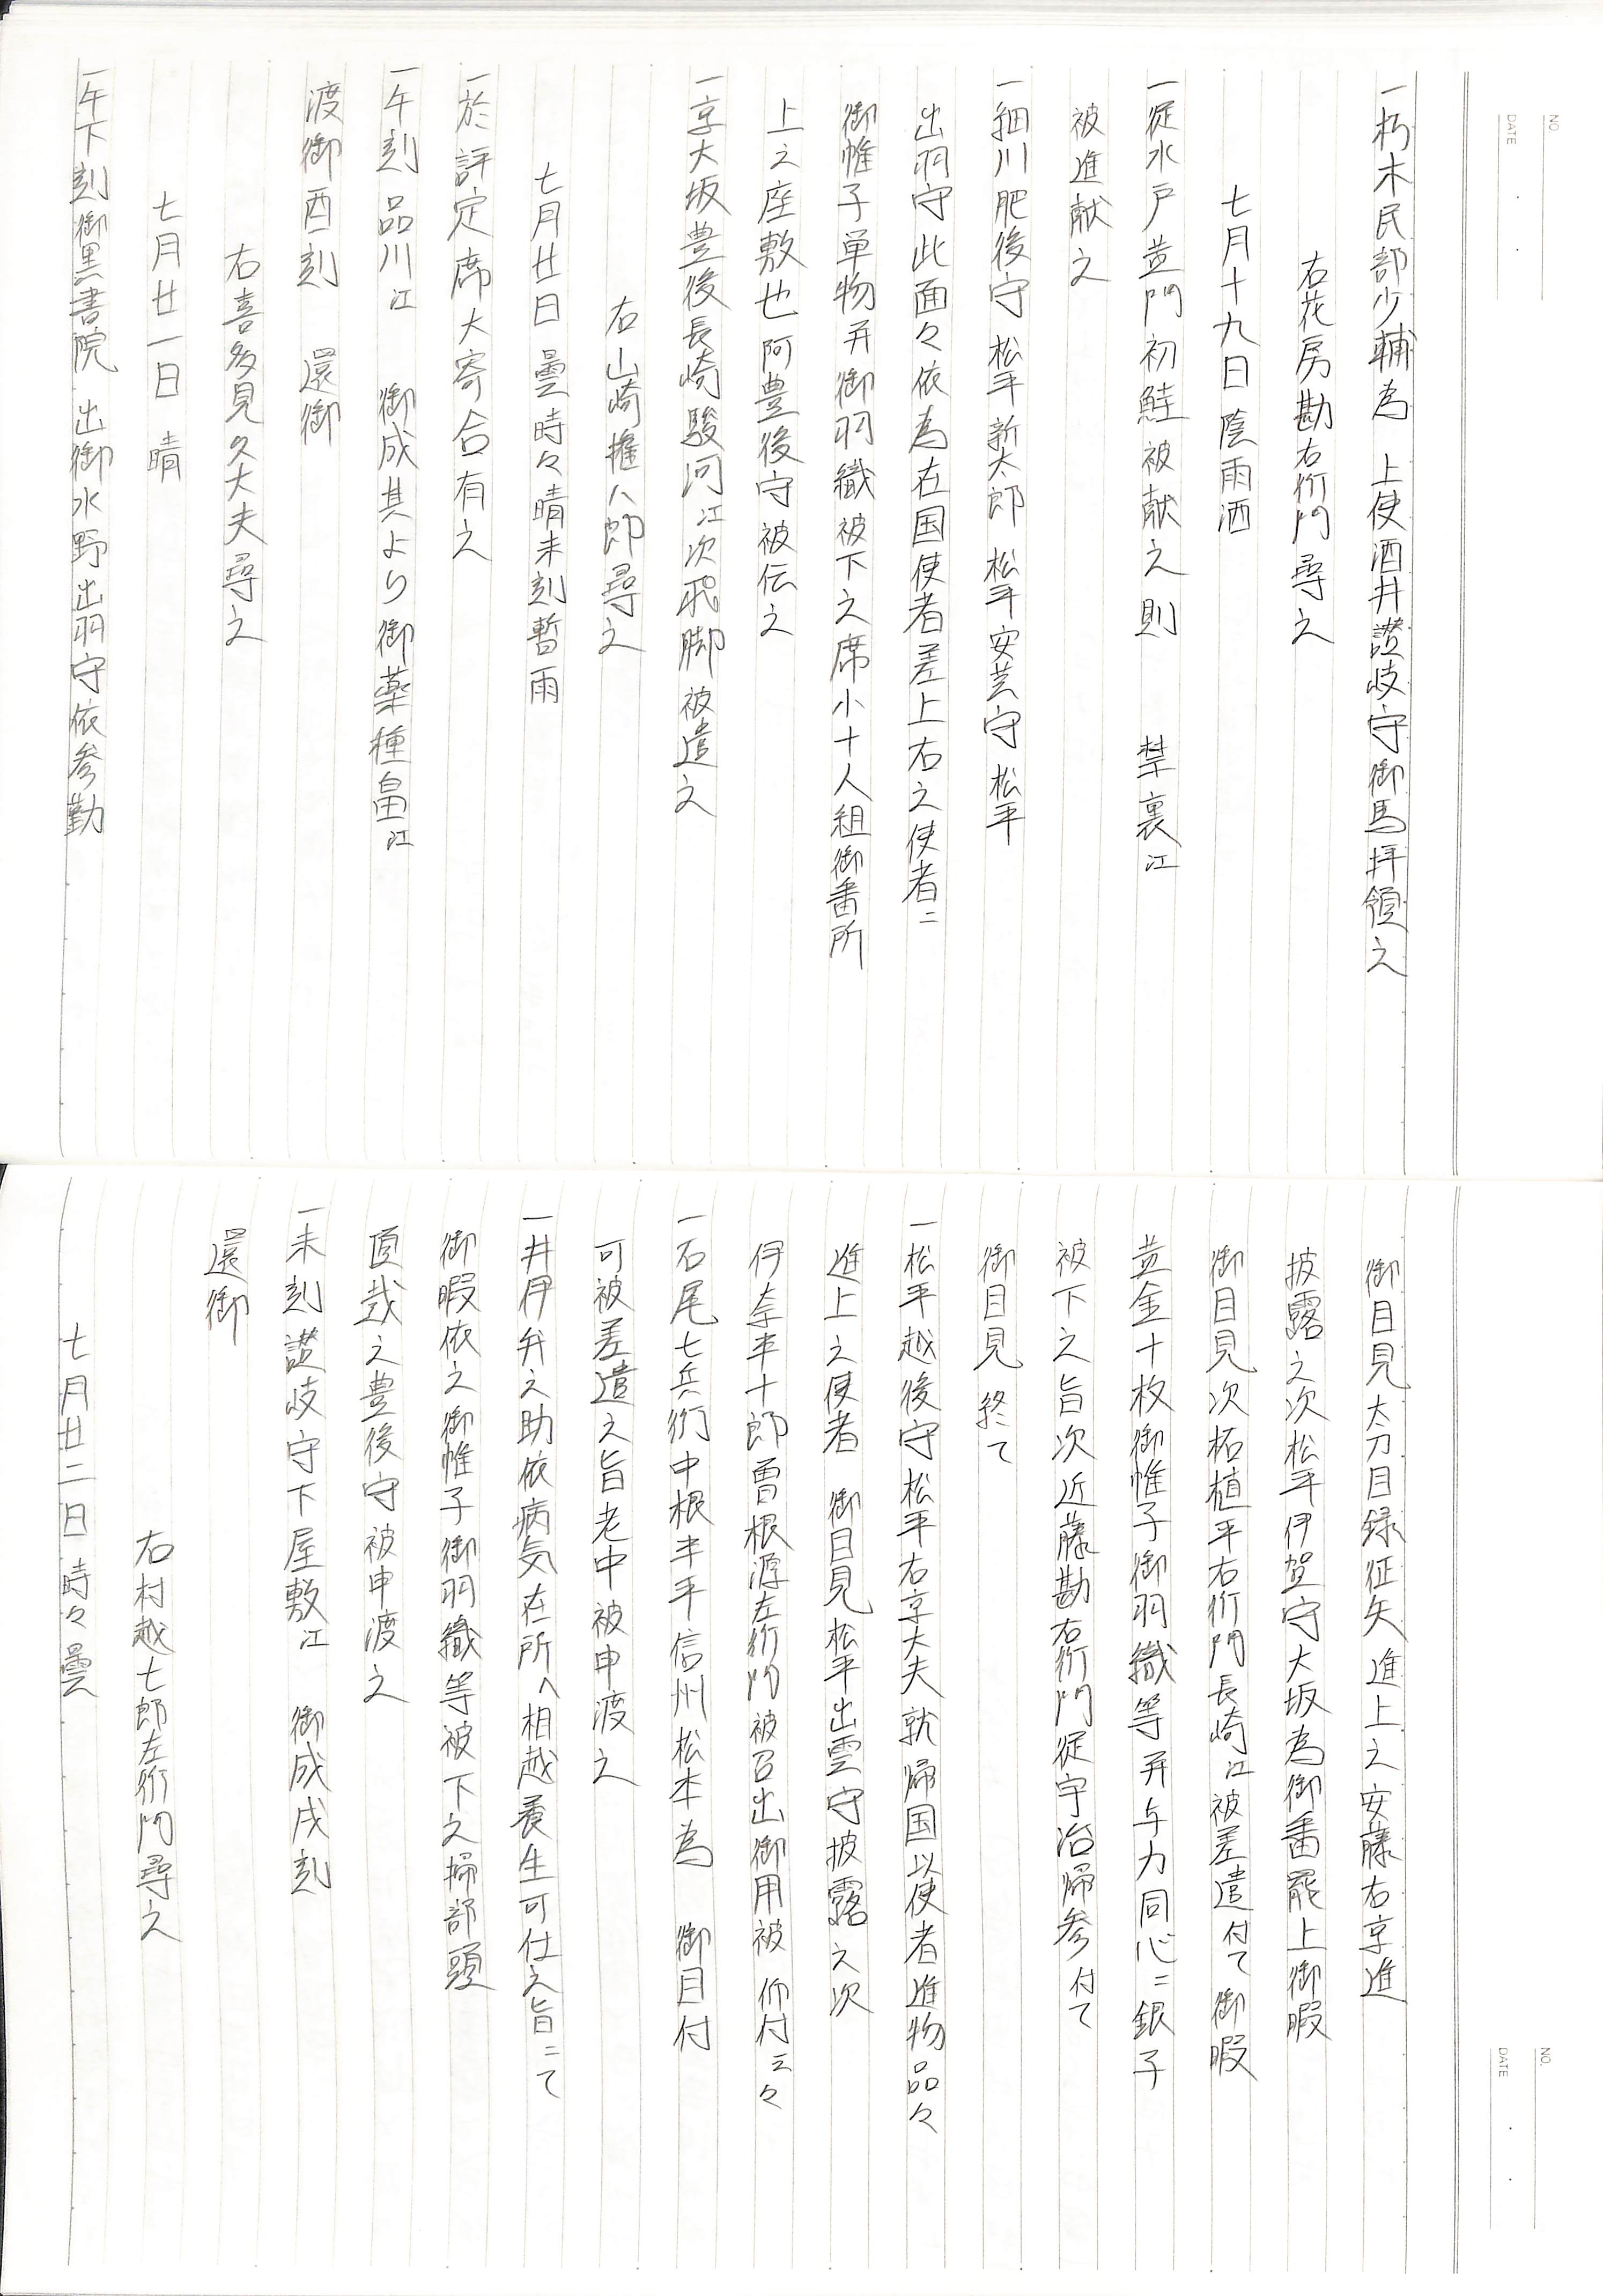 NO.
DATE
一朽木民部少輔為　上使酒井讃岐守御馬拝領之
右花房勘右衛門尋之
七月十九日陰雨洒
一従水戸黄門初鮭被献之則　禁裏江
被進献之
一細川肥後守松平新太郎松平安芸守松平
出羽守此面々依為在国使者差上右之使者ニ
御帷子単物并御羽織被下之席小十人組御番所
上之座敷也阿豊後守被伝之
一京大坂豊後長崎駿河江次飛脚被遣之
右山崎権八郎尋之
七月廿日曇時々晴未刻暫雨
一於評定席大寄合有之
一午刻品川江　御成其より御薬種畠江
渡御酉刻　還御
右喜多見久大夫尋之
七月廿一日　晴
一午下刻御黒書院　出御水野出羽守依参勤
NO.
DATE
御目見太刀目録征矢進上之安藤右京進
披露之次松平伊賀守大坂為御番罷上御暇
御目見次柘植平右衛門長崎江被差遣付て御暇
黄金十枚御帷子御羽織等并与力同心ニ銀子
被下之旨次近藤勘右衛門従宇治帰参付て
御目見終て
一松平越後守松平右京大夫就帰国以使者進物品々
進上之使者　御目見松平出雲守披露之次
伊奈半十郎曽根源左衛門被召出御用被　仰付云々
一石尾七兵衛中根半平信州松本為　御目付
可被差遣之旨老中被申渡之
一井伊弁之助依病気在所へ相越養生可仕之旨ニて
御暇依之御帷子御羽織等被下之掃部頭
直哉之豊後守被申渡之
一未刻讃岐守下屋敷江　御成戌刻
還御
右村越七郎左衛門尋之
七月廿二日　時々曇